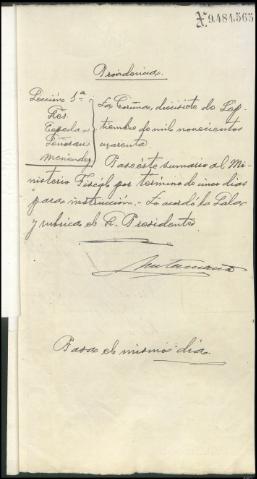 X 9.484.565
Providencia.
Sección 1ª
Sres.
Menéndez
La Coruña, diecisiete de Sep-
tiembre de mil novecientos
cuarenta
Pase este sumario al Mi-
nisterio Fiscal por termino de cinco dias
para instrucción.- Lo acordó la Sala
y rubrica el Sr. Presidente.
Pasa el mismo dia.